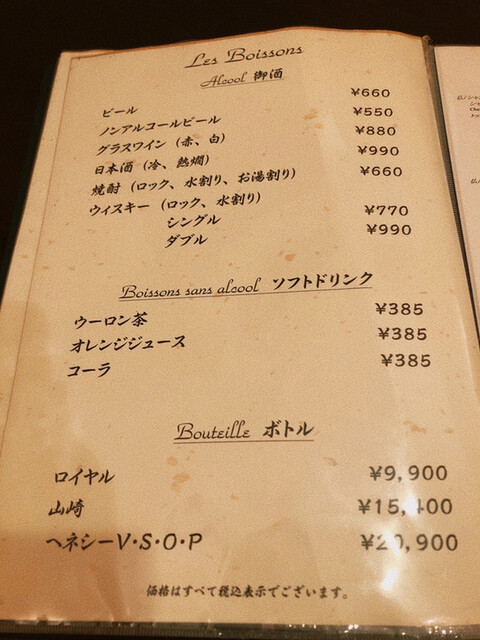 Les Boissons
Alcool 御酒
ビール ¥660
ノンアルコールビール ¥550
グラスワイン（赤、白） ¥880
日本酒（冷、熱燗） ¥990
焼酎（ロック、水割り、お湯割り） ¥660
ウィスキー（ロック、水割り）
シングル ¥770
ダブル ¥990
Boissons sans alcool ソフトドリンク
ウーロン茶 ¥385
オレンジジュース ¥385
コーラ ¥385
Bouteille ボトル
ロイヤル ¥9,900
山崎 ¥15,400
ヘネシーV・S・O・P
価格はすべて税込表示でございます。